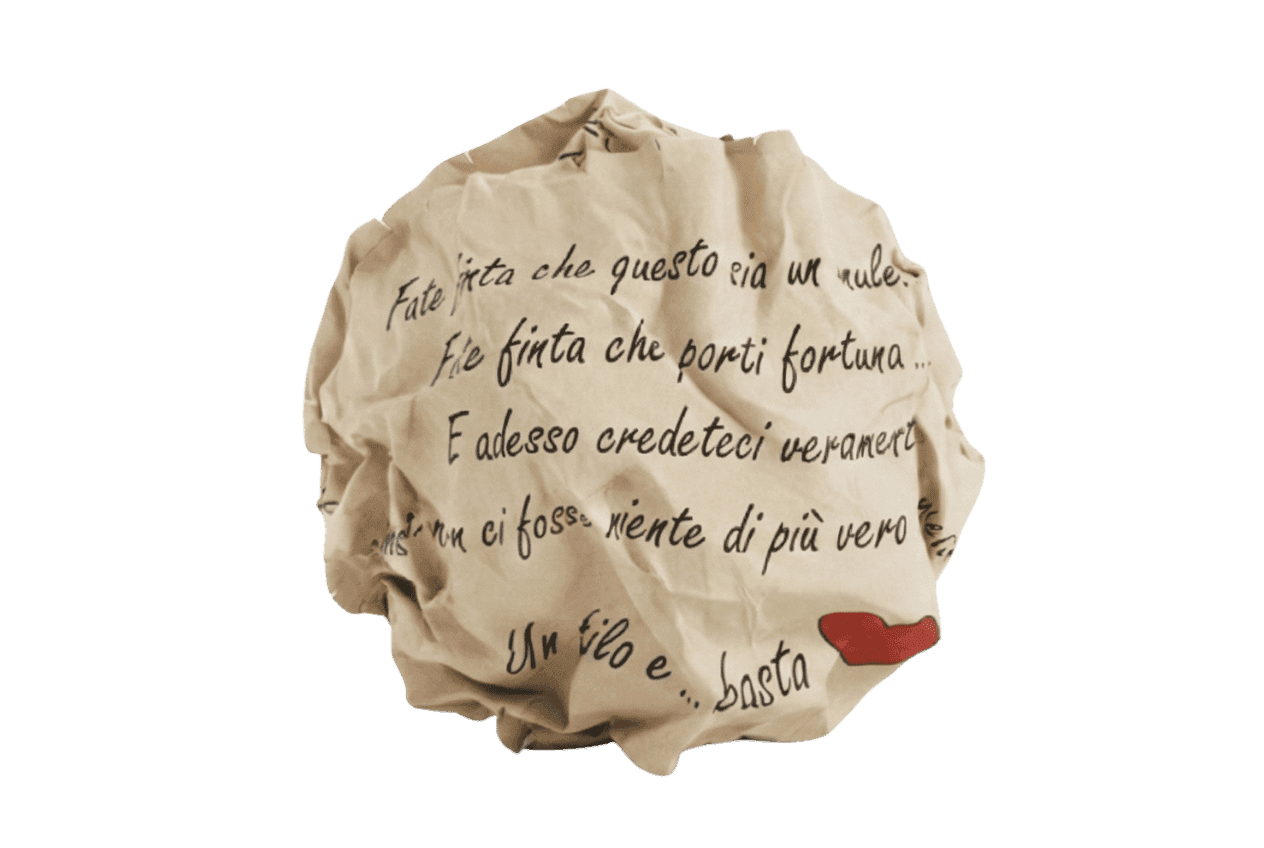 Fate finta che questo sia un
Fate finta che porti fortuna...
E adesso credeteci
non ci fosse niente di più vero
Un filo e... basta